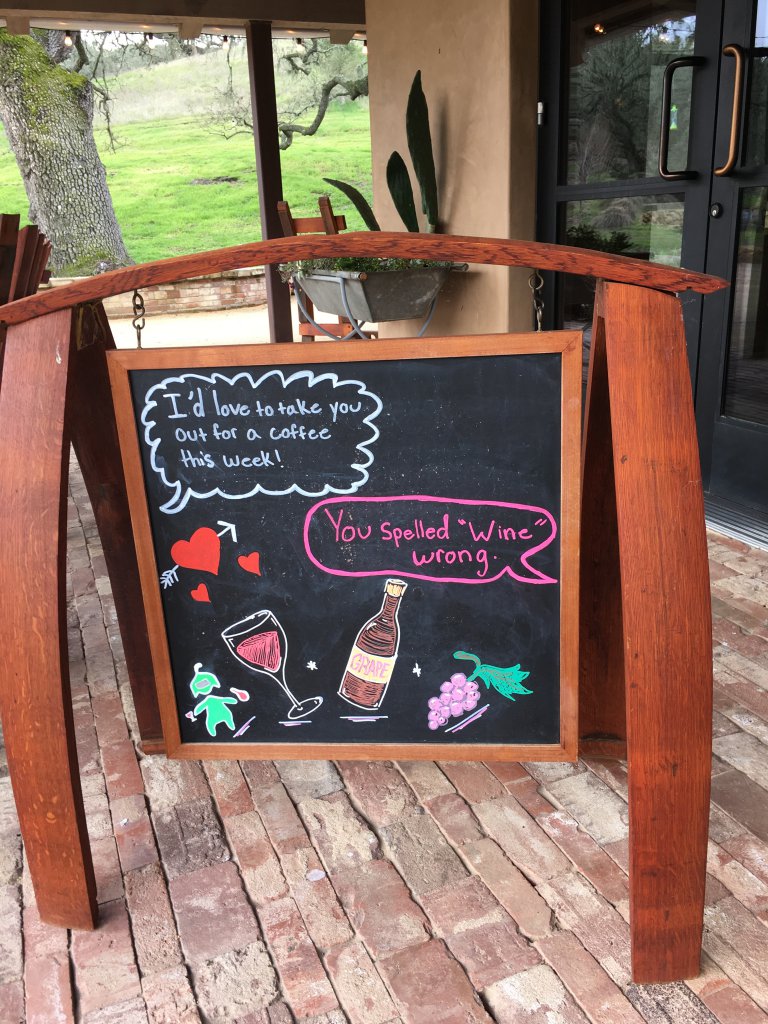 I'd love to take you
out for a coffee
this week!
You Spelled "Wine"
wrong.
GRAPE